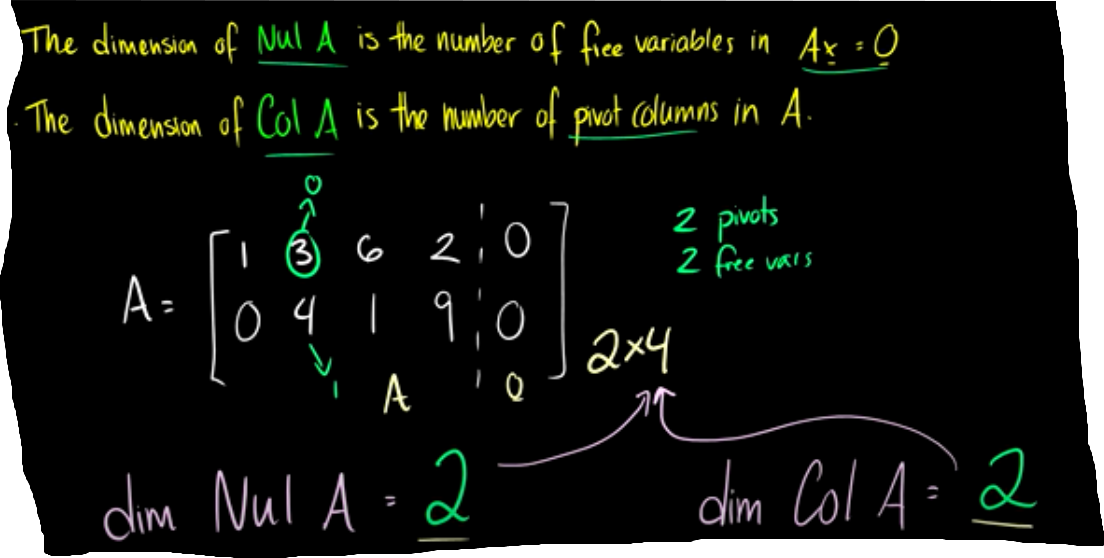 The dimension of Nul A is the number of free variables in Ax = 0
The dimension of Col A is the number of pivot columns in A.
0
A = [ 1 3 6 2 ¦ 0 ]
0 4 1 9 ¦ 0
2 pivots
2 free vars
2×4
1 A ¦ 0
dim Nul A = 2
dim Col A = 2